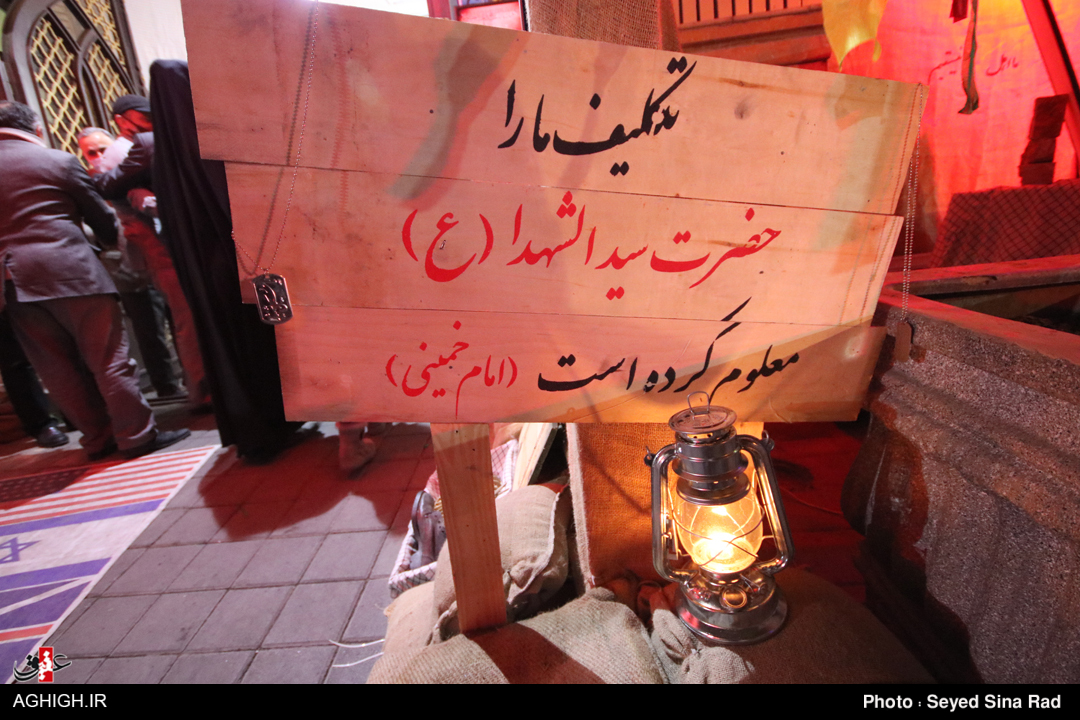 تکلیف ما را
حضرت سیدالشهدا (ع)
معلوم کرده است (امام خمینی)
AGHIGH.IR
Photo : Seyed Sina Rad